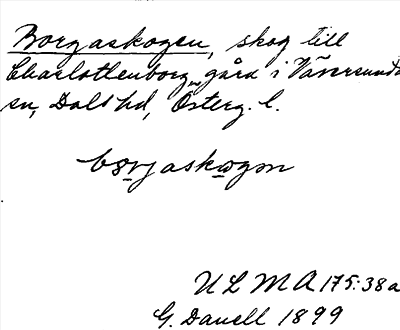 Borgaskogen, skog till
Charlottenborg, gård i Väversunda
sn, Dals hd, Österg. l.
bo̲rjasko̲gən
ULMA 175:38a
G. Danell 1899